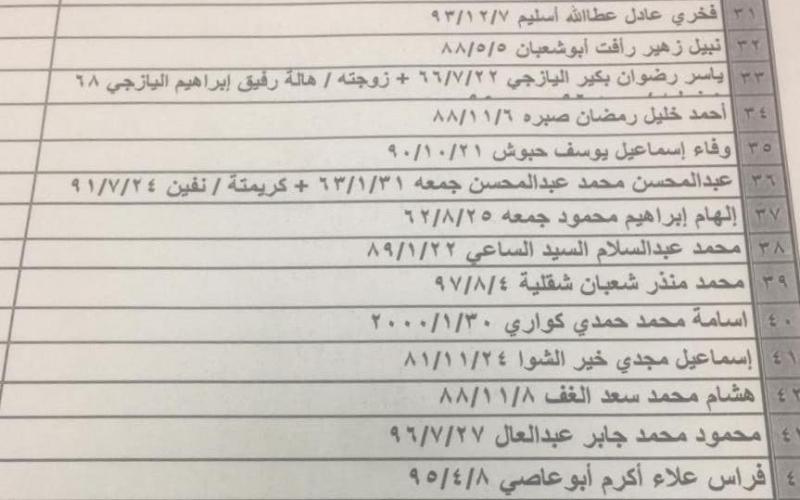 ٣١ فخري عادل عطاالله أسليم ٩٣/١٢/٧
٣٢ نبيل زهير رأفت أبوشعبان ٨٨/٥/٥
٣٣ ياسر رضوان بكير اليازجي ٦٦/٧/٢٢ + زوجته / هالة رفيق إبراهيم اليازجي ٦٨
٣٤ أحمد خليل رمضان صبره ٨٨/١١/٦
٣٥ وفاء إسماعيل يوسف حبوش ٩٠/١٠/٢١
٣٦ عبدالمحسن محمد عبدالمحسن جمعه ٦٣/١/٣١ + كريمتة / نفين ٩١/٧/٢٤
٣٧ إلهام إبراهيم محمود جمعه ٦٢/٨/٢٥
٣٨ محمد عبدالسلام السيد الساعي ٨٩/١/٢٢
٣٩ محمد منذر شعبان شقلية ٩٧/٨/٤
٤٠ اسامة محمد حمدي كواري ٢٠٠٠/١/٣٠
٤١ إسماعيل مجدي خير الشوا ٨١/١١/٢٤
٤٢ هشام محمد سعد الغف ٨٨/١١/٨
محمود محمد جابر عبدالعال ٩٦/٧/٢٧
فراس علاء أكرم أبوعاصي ٩٥/٤/٨